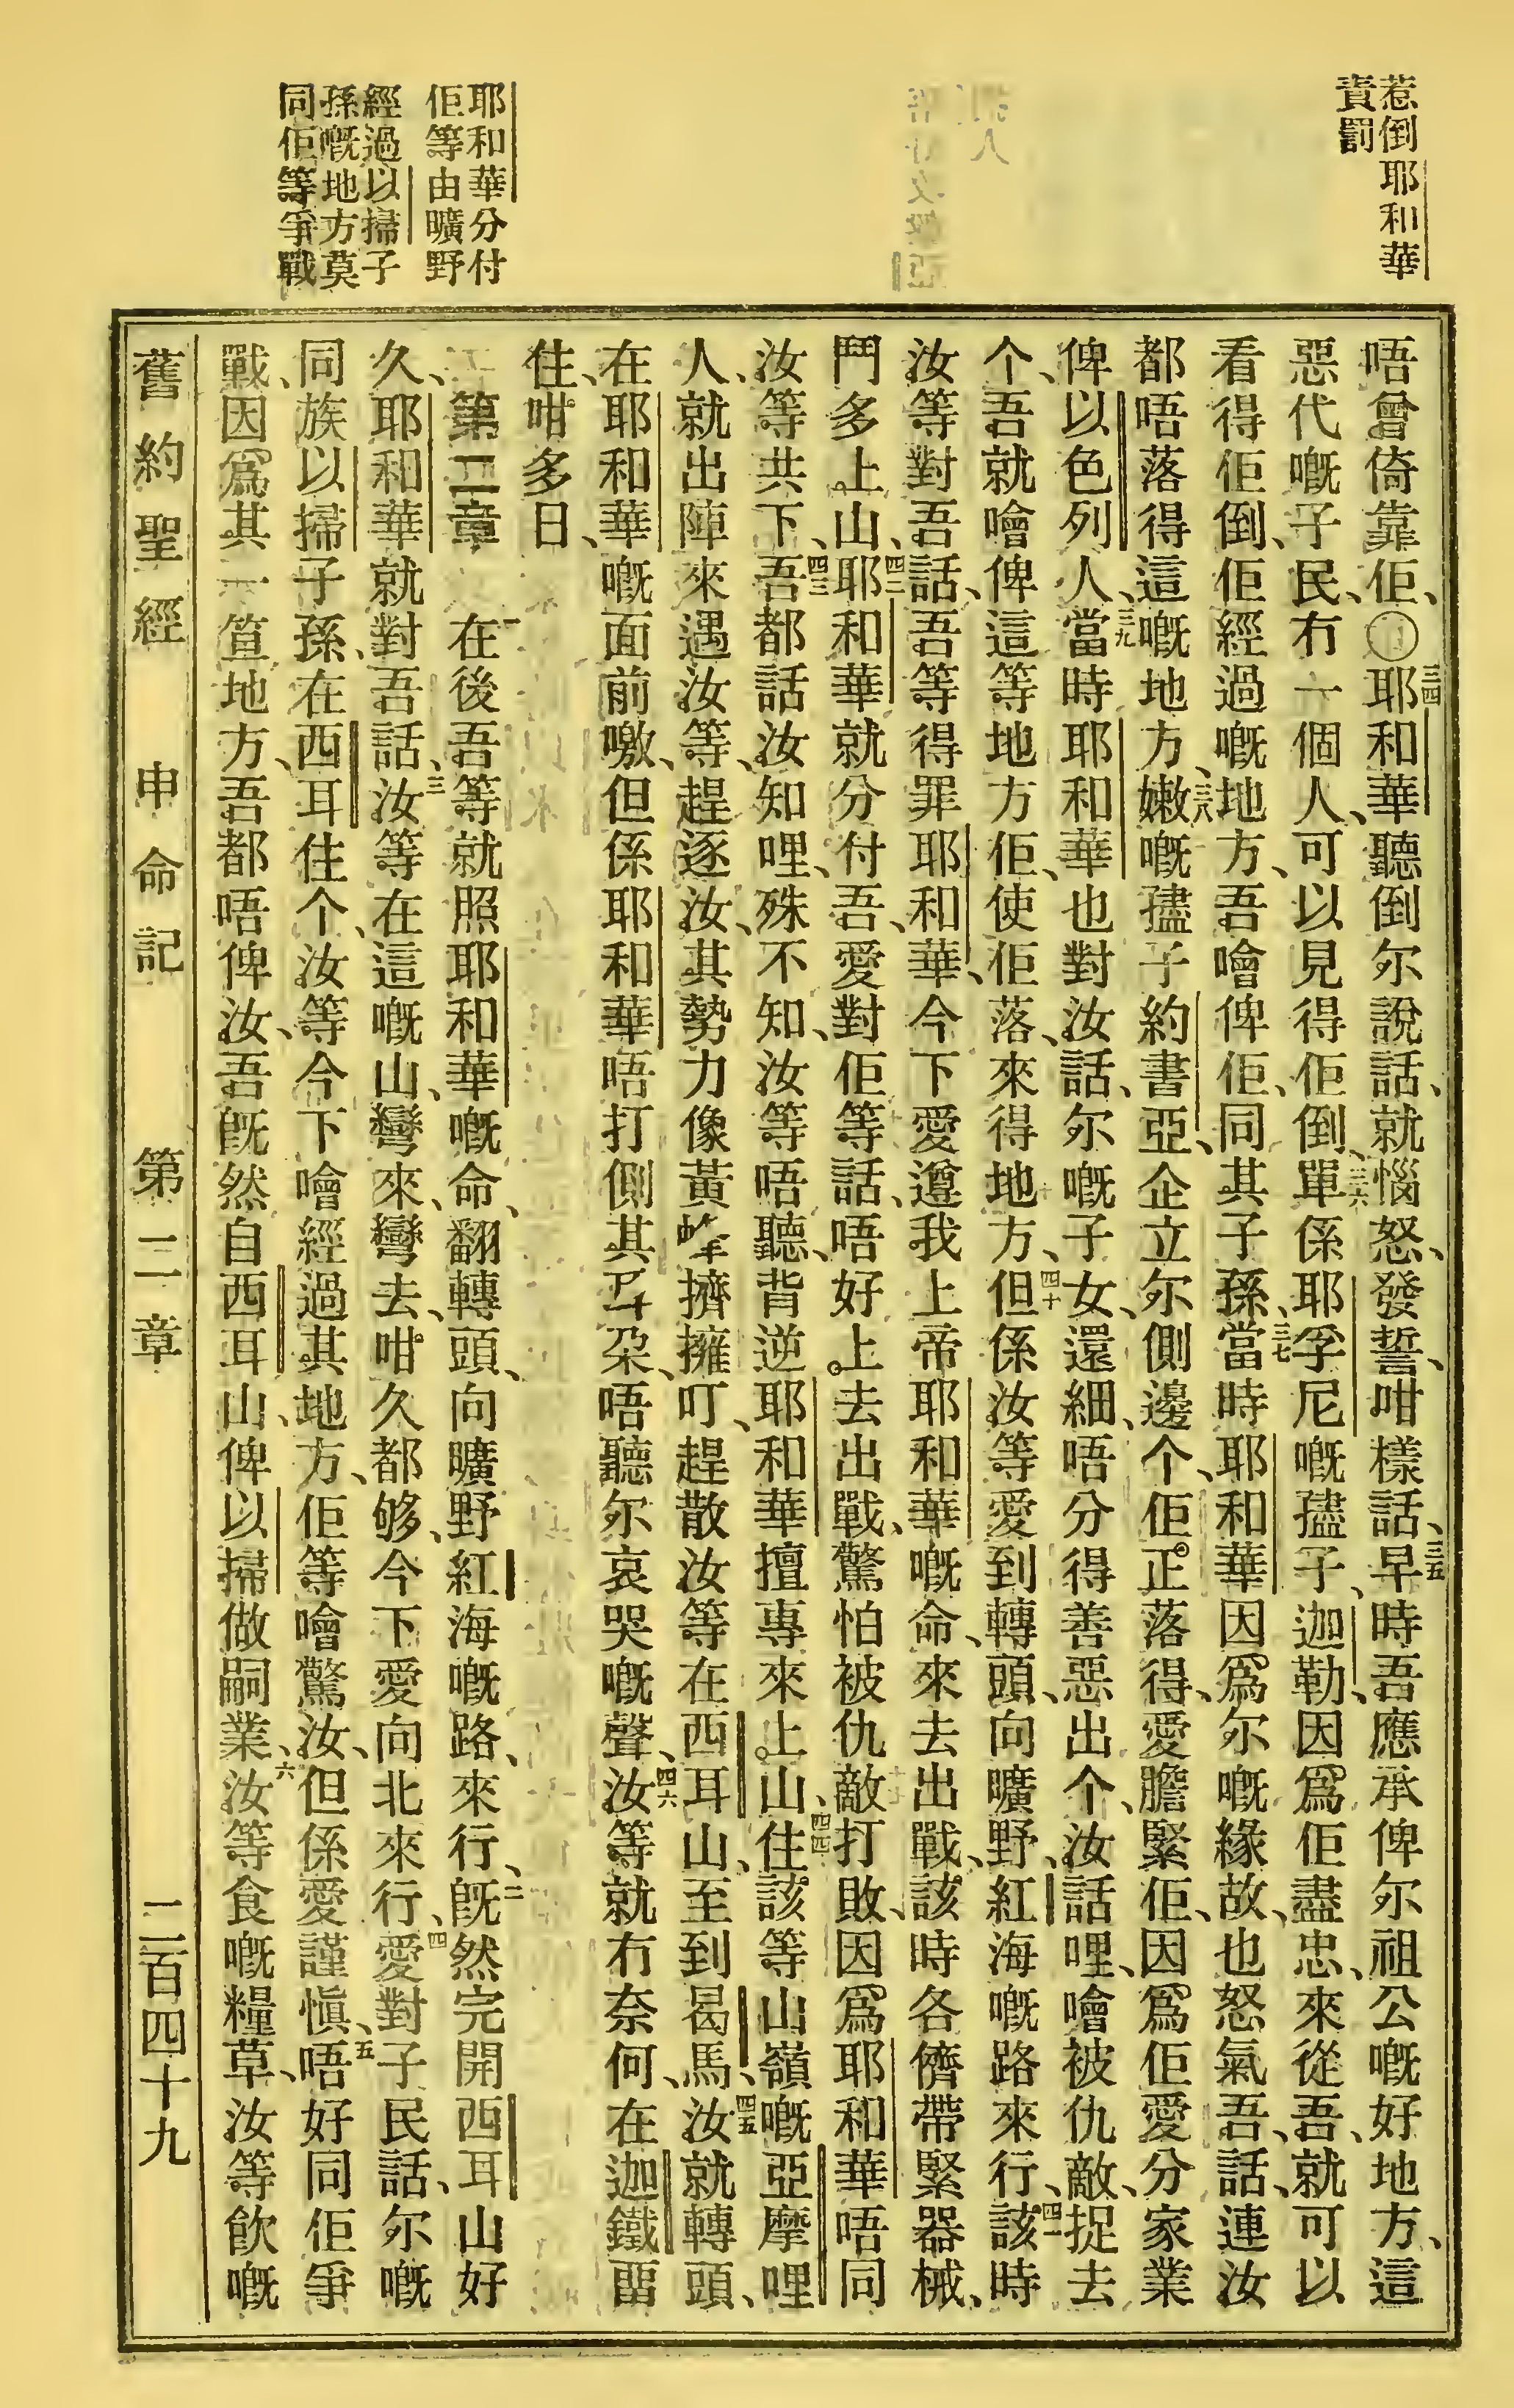 惹倒耶和華
責罰
耶和華分付
佢等由曠野
經過以掃子
孫嘅地方莫
同佢等爭戰
唔曾倚靠佢、〇三四耶和華聽倒尔說話、就惱怒、發誓、咁樣話、三五早時吾應承俾尔祖公嘅好地方、這
惡代嘅子民、冇一個人、可以見得佢倒、三六單係耶孚尼嘅孻子、迦勒、因爲佢盡忠、來從吾、就可以
看得佢倒、佢經過嘅地方、吾噲俾佢、同其子孫、三七當時耶和華因爲尔嘅緣故、也怒氣吾、話、連汝
都唔落得這嘅地方、三八嫩嘅孻子約書亞、企立尔側邊个、佢正落得、愛膽緊佢、因爲佢愛分家業
俾以色列人、三九當時耶和華也對汝話、尔嘅子女、還細、唔分得善惡出个、汝話哩、噲被仇敵、捉去
个、吾就噲俾這等地方佢、使佢落、來得地方、四十但係汝等愛到轉頭、向曠野、紅海嘅路來行、四一該時
汝等對吾話、吾等得罪耶和華、今下愛遵我上帝耶和華嘅命、來去出戰、該時各儕帶緊器械、
鬥多上山、四二耶和華就分付吾、愛對佢等話、唔好上去出戰、驚怕被仇敵打敗、因爲耶和華唔同
汝等共下、四三吾都話汝知哩、殊不知、汝等唔聽、背逆耶和華擅專來上山、四四住該等山嶺嘅亞摩哩
人、就出陣來遇汝等、趕逐汝、其勢力像黃蜂擠擁叮、趕散汝等在西耳山、至到曷馬、四五汝就轉頭、
在耶和華嘅面前噭、但係耶和華唔打側其耳朶、唔聽尔哀哭嘅聲、四六汝等就冇奈何、在迦鐵畱
住、咁多日、
第二章　一在後吾等就照耶和華嘅命、翻轉頭、向曠野紅海嘅路、來行、二旣然完開西耳山好
久、耶和華就對吾話、三汝等在這嘅山、彎來、彎去、咁久都够、今下愛向北來行、四愛對子民話、尔嘅
同族以掃子孫、在西耳住个、汝等今下噲經過其地方、佢等噲驚汝、但係愛謹愼、五唔好同佢爭
戰、因爲其一笪地方、吾都唔俾汝、吾旣然自西耳山、俾以掃做嗣業、六汝等食嘅糧草、汝等飮嘅
舊約聖經　申命記　第二章　二百四十九